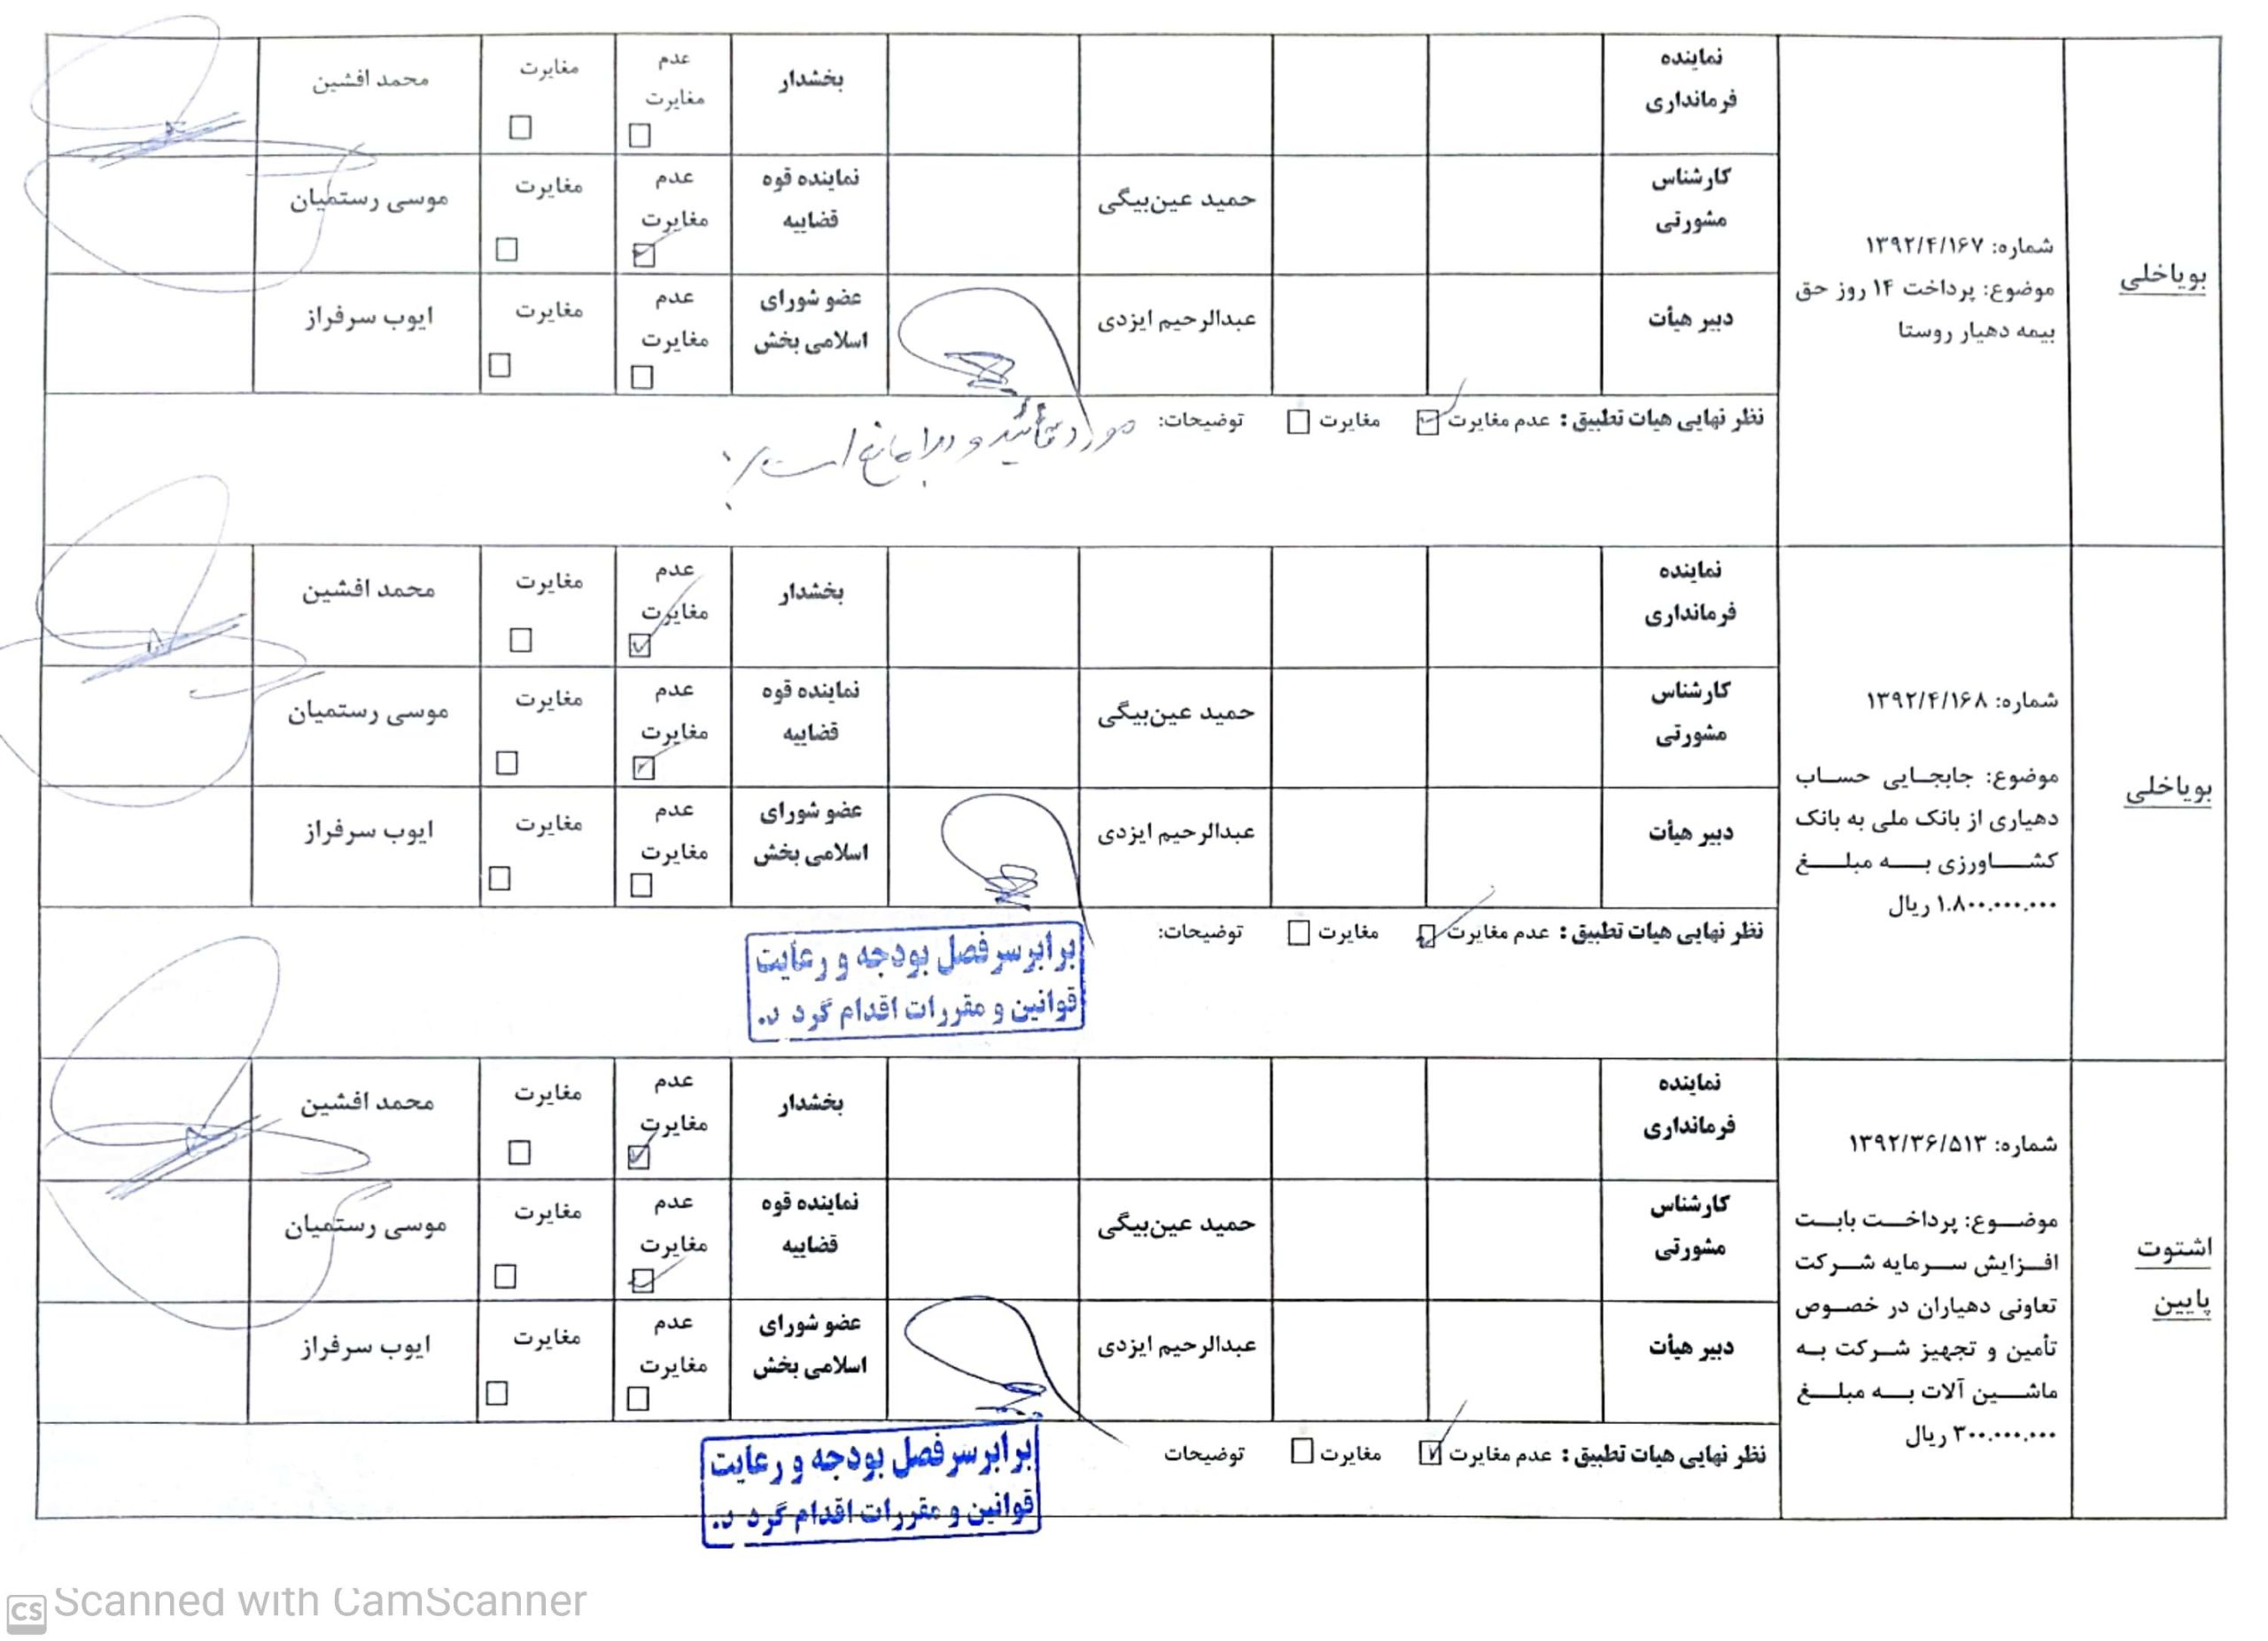 بویاخلی
شماره: ۱۳۹۲/۴/۱۶۷
موضوع: پرداخت ۱۴ روز حق
بیمه دهیار روستا
نماینده
فرمانداری
بخشدار
عدم
مغایرت
مغایرت
محمد افشین
کارشناس
مشورتی
حمید عین‌بیگی
نماینده قوه
قضاییه
عدم
مغایرت
مغایرت
موسی رستمیان
دبیر هیأت
عبدالرحیم ایزدی
عضو شورای
اسلامی بخش
عدم
مغایرت
مغایرت
ایوب سرفراز
نظر نهایی هیات تطبیق : عدم مغایرت مغایرت توضیحات:
مورد تائید و بلامانع است
بویاخلی
شماره: ۱۳۹۲/۴/۱۶۸
موضوع: جابجایی حساب
دهیاری از بانک ملی به بانک
کشاورزی به مبلغ
۱.۸۰۰.۰۰۰.۰۰۰ ریال
نماینده
فرمانداری
بخشدار
عدم
مغایرت
مغایرت
محمد افشین
کارشناس
مشورتی
حمید عین‌بیگی
نماینده قوه
قضاییه
عدم
مغایرت
مغایرت
موسی رستمیان
دبیر هیأت
عبدالرحیم ایزدی
عضو شورای
اسلامی بخش
عدم
مغایرت
مغایرت
ایوب سرفراز
نظر نهایی هیات تطبیق : عدم مغایرت مغایرت توضیحات:
برابر سر فصل بودجه و رعایت
قوانین و مقررات اقدام گردد.
اشتوت
پایین
شماره: ۱۳۹۲/۳۶/۵۱۳
موضوع: پرداخت بابت
افزایش سرمایه شرکت
تعاونی دهیاران در خصوص
تأمین و تجهیز شرکت به
ماشین آلات به مبلغ
۳۰۰.۰۰۰.۰۰۰ ریال
نماینده
فرمانداری
بخشدار
عدم
مغایرت
مغایرت
محمد افشین
کارشناس
مشورتی
حمید عین‌بیگی
نماینده قوه
قضاییه
عدم
مغایرت
مغایرت
موسی رستمیان
دبیر هیأت
عبدالرحیم ایزدی
عضو شورای
اسلامی بخش
عدم
مغایرت
مغایرت
ایوب سرفراز
نظر نهایی هیات تطبیق : عدم مغایرت مغایرت توضیحات
برابر سر فصل بودجه و رعایت
قوانین و مقررات اقدام گردد.
CS Scanned with CamScanner